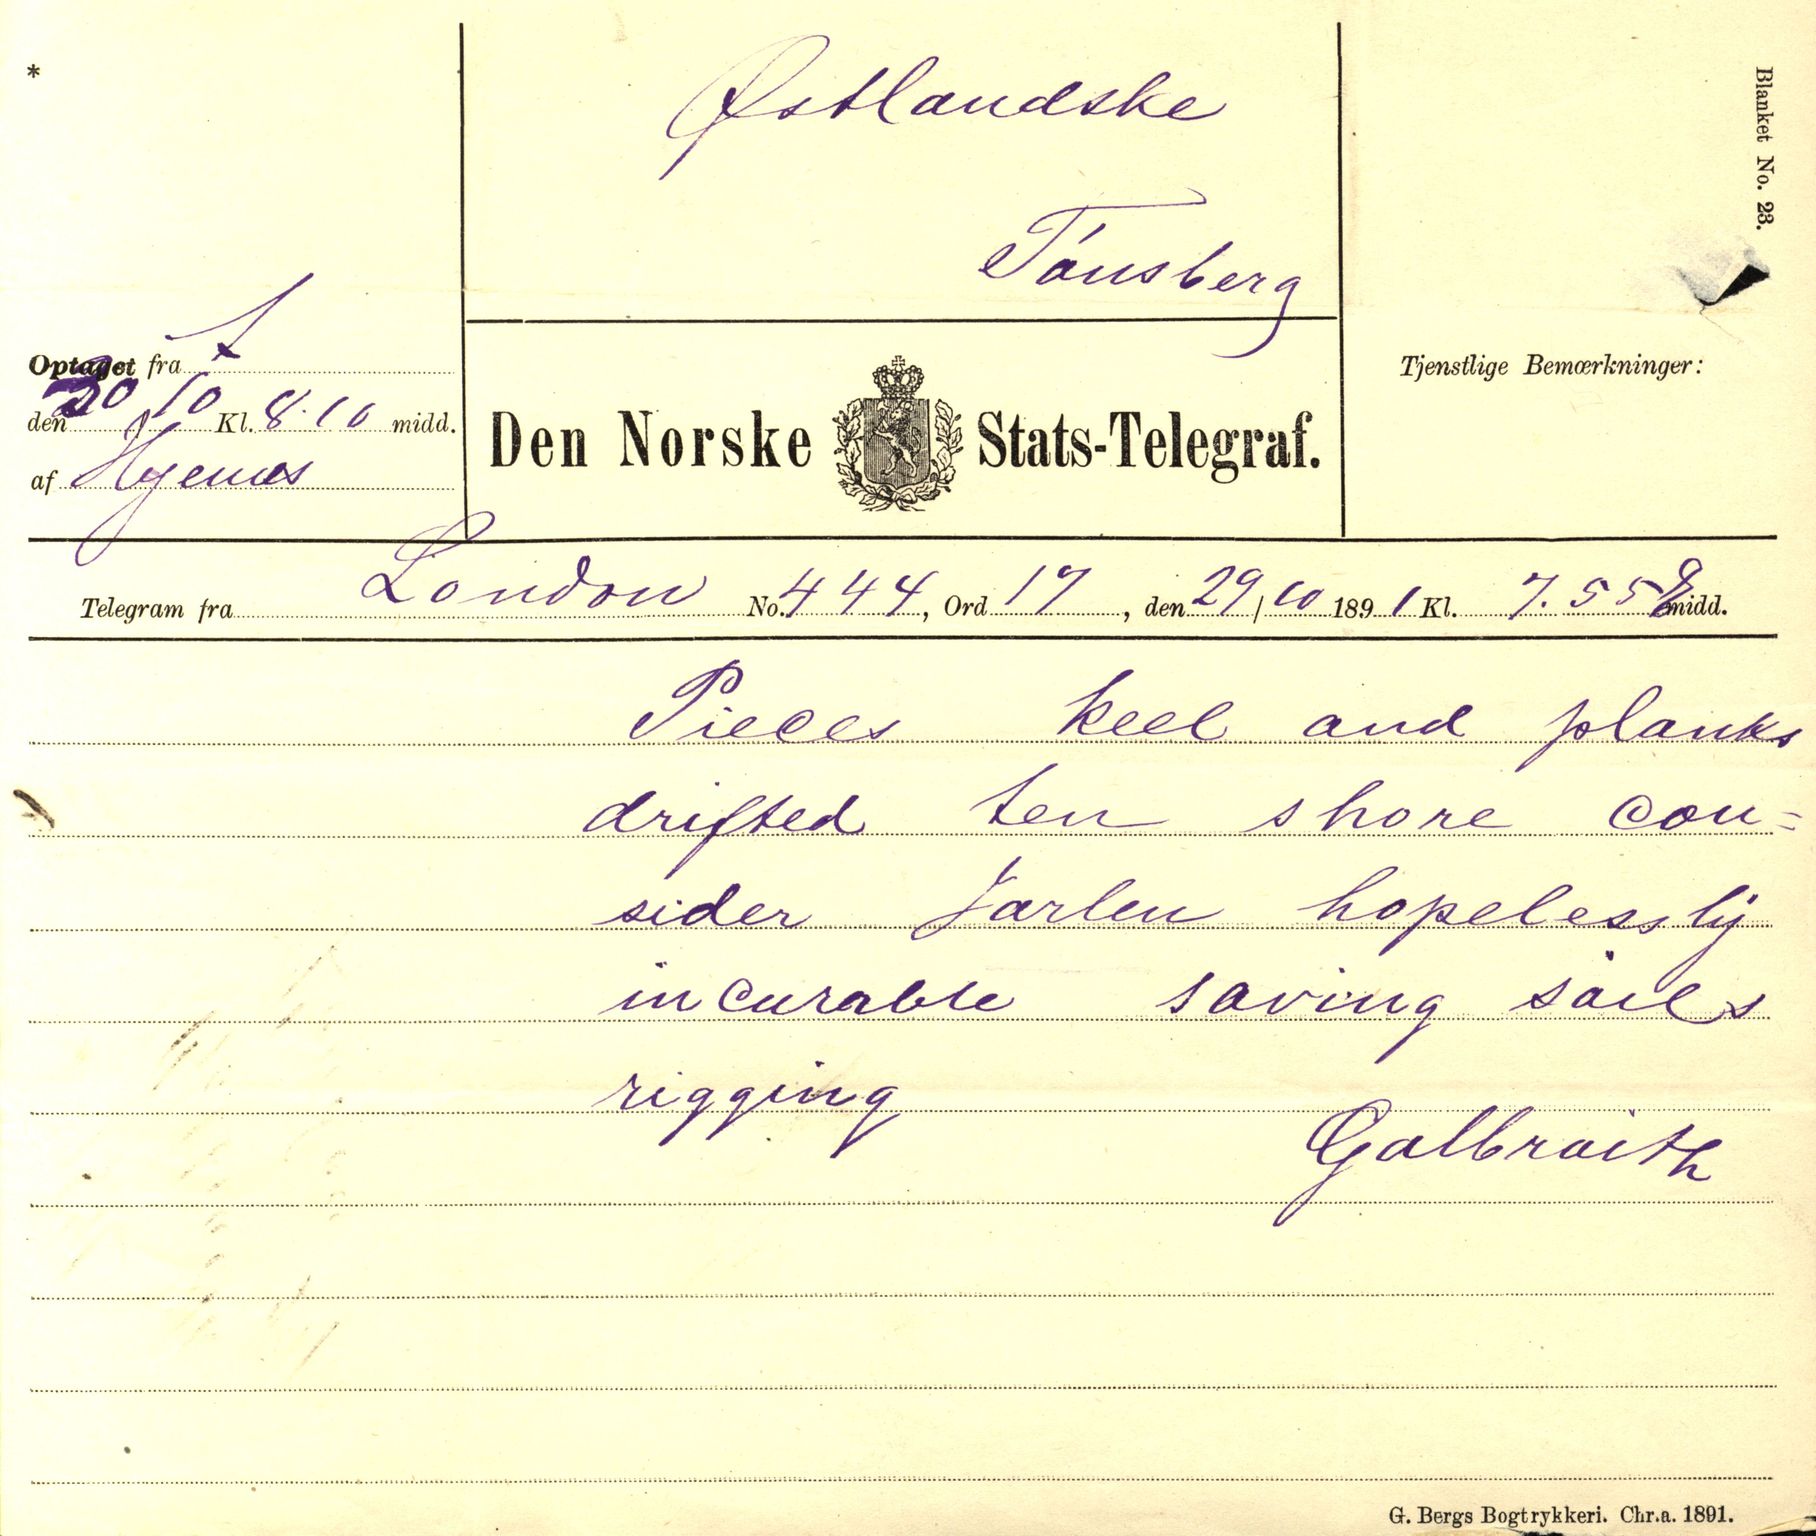 *
Østlandske
Tønsberg
Blanket No. 23.
Optaget fra
den 30/10 Kl. 8.10 midd.
af
Den Norske Stats-Telegraf.
Tjenstlige Bemærkninger:
Telegram fra London No. 444, Ord 17, den 29/10 1891 Kl. 7.55 midd.
Pieces keel and planks
drifted ten shore con=
sider Jarlen hopelessly
incurable saving sails
rigging
Galbraith
G. Bergs Bogtrykkeri. Chr.a. 1891.